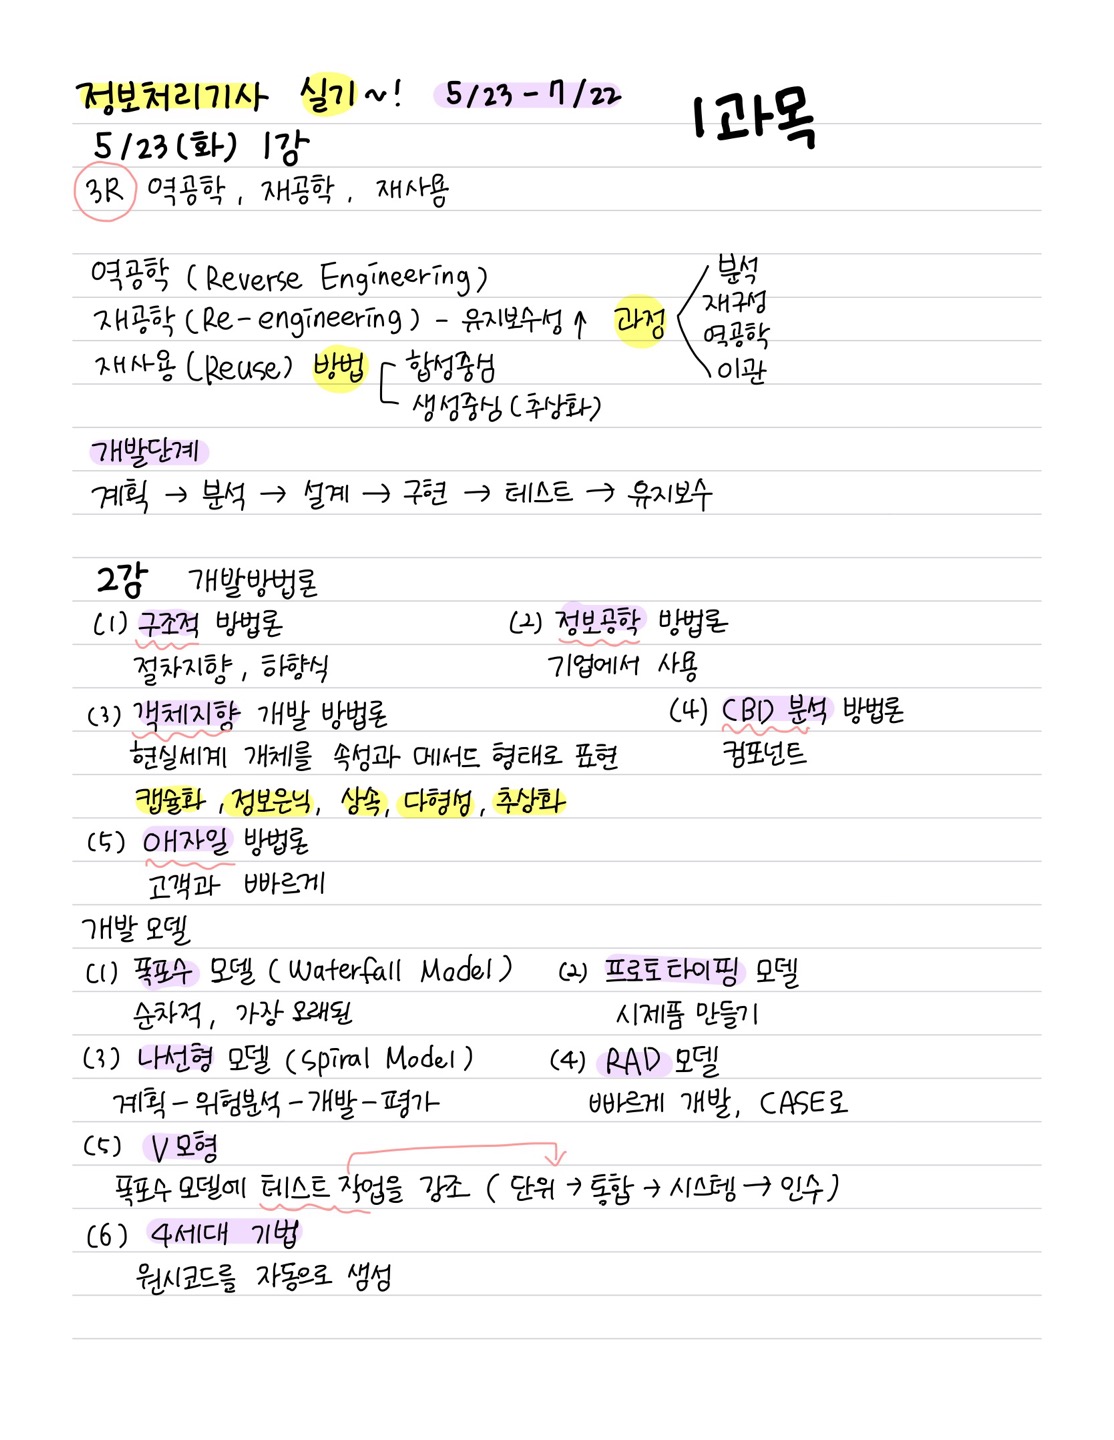 정보처리기사 실기~! 5/23-7/22
1과목
5/23(화) 1강
3R 역공학, 재공학, 재사용
역공학 (Reverse Engineering)
재공학 (Re-engineering) - 유지보수성↑ 과정
분석
재구성
역공학
이관
재사용 (Reuse) 방법
합성중심
생성중심 (추상화)
개발단계
계획 → 분석 → 설계 → 구현 → 테스트 → 유지보수
2강 개발방법론
(1) 구조적 방법론 (2) 정보공학 방법론
절차지향, 하향식 기업에서 사용
(3) 객체지향 개발 방법론 (4) CBD 분석 방법론
현실세계 개체를 속성과 메서드 형태로 표현 컴포넌트
캡슐화, 정보은닉, 상속, 다형성, 추상화
(5) 애자일 방법론
고객과 빠르게
개발 모델
(1) 폭포수 모델 (Waterfall Model) (2) 프로토타이핑 모델
순차적, 가장 오래된 시제품 만들기
(3) 나선형 모델 (Spiral Model) (4) RAD 모델
계획-위험분석-개발-평가 빠르게 개발, CASE로
(5) V모형
폭포수 모델에 테스트 작업을 강조 (단위→통합→시스템→인수)
(6) 4세대 기법
원시코드를 자동으로 생성